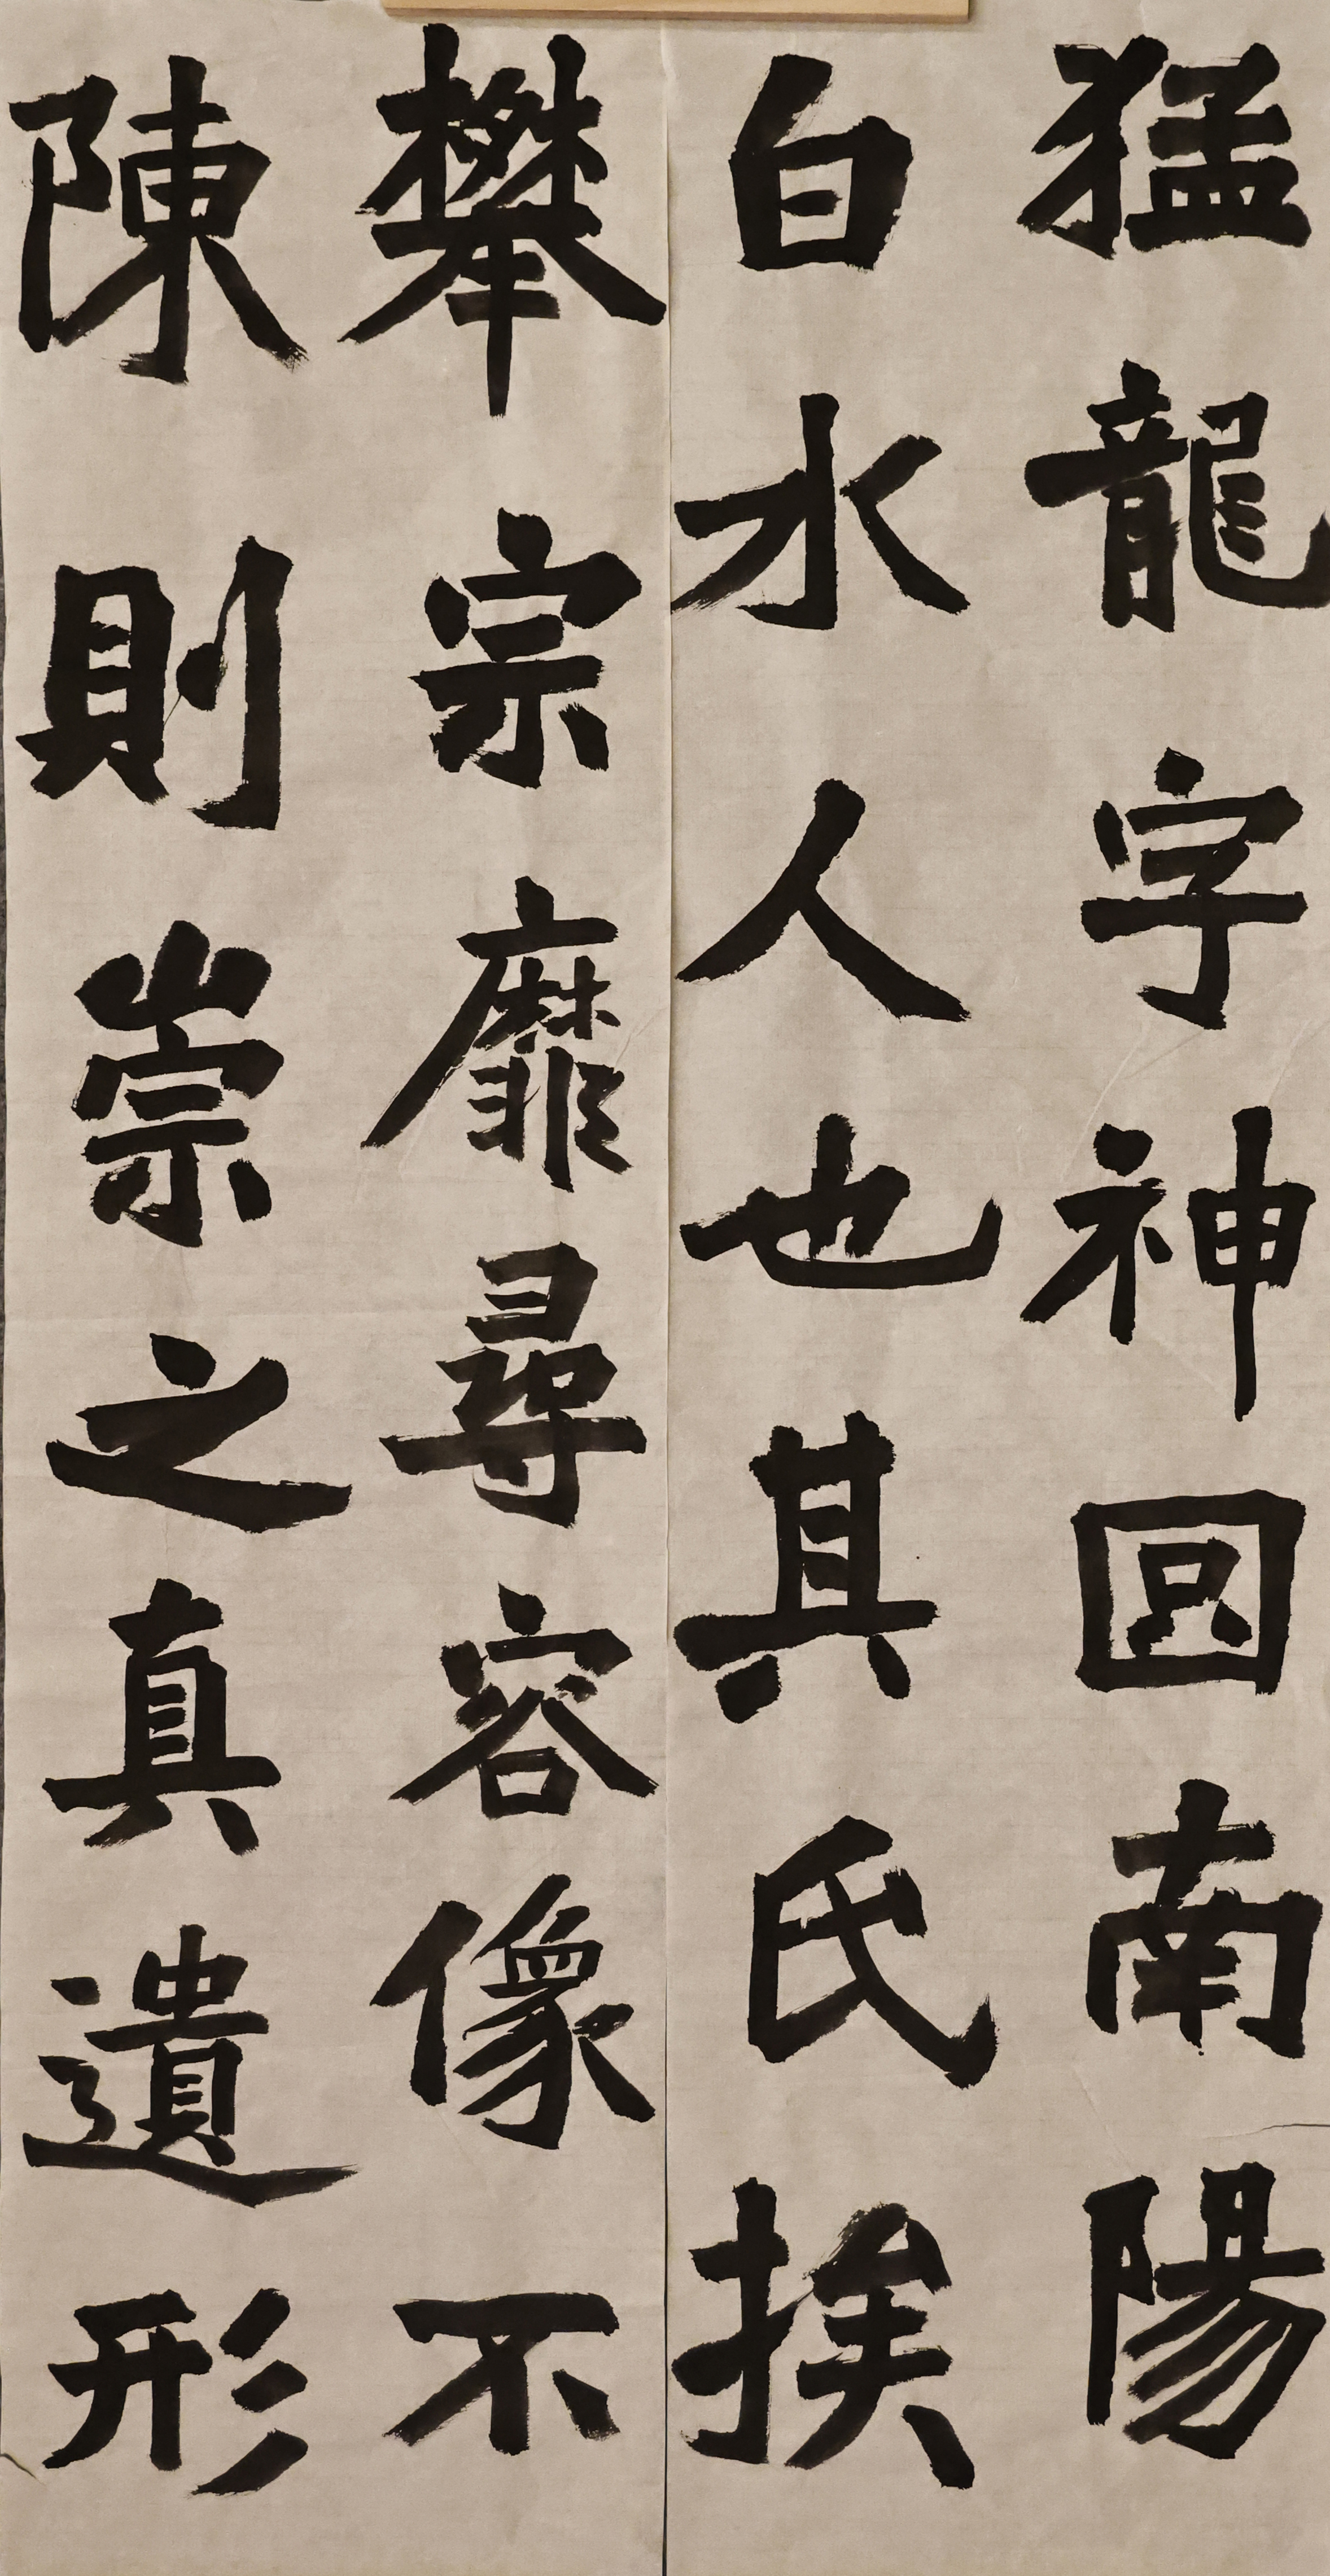 猛龍字神囧南陽
白水人也其氏族
攀宗靡尋容像不
陳則崇之真遺形